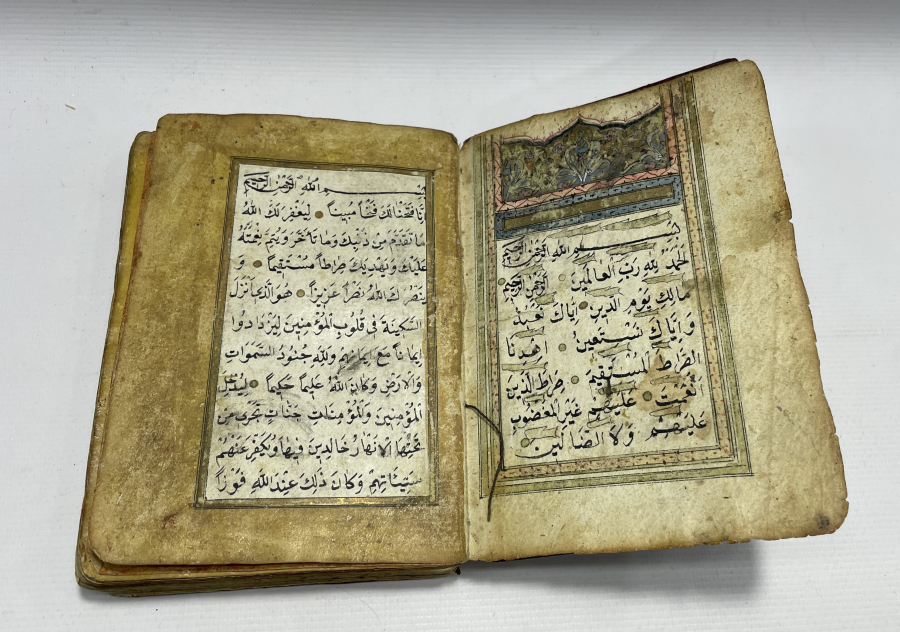 بسم الله الرحمن الرحيم
الحمد لله رب العالمين الرحمن الرحيم
مالك يوم الدين اياك نعبد
و اياك نستعين اهدنا
الصراط المستقيم صراط الذين
انعمت عليهم غير المغضوب
عليهم ولا الضالين
بسم الله الرحمن الرحيم
انا فتحنا لك فتحا مبينا ليغفر لك الله
ما تقدم من ذنبك وما تأخر ويتم نعمته
عليك ويهديك صراطا مستقيما و
ينصرك الله نصرا عزيزا هو الذي انزل
السكينة في قلوب المؤمنين ليزدادوا
ايمانا مع ايمانهم ولله جنود السموات
والارض وكان الله عليما حكيما ليدخل
المؤمنين والمؤمنات جنات تجري من
تحتها الانهار خالدين فيها ويكفر عنهم
سيئاتهم وكان ذلك عند الله فوزا